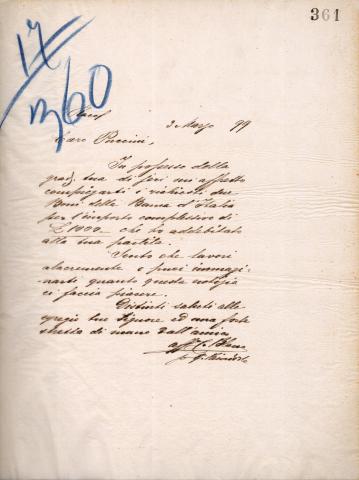 361
17
360
3 Marzo 99
Caro Puccini,
In possesso della
grad. tua di ieri mi affretto
compiegarti i richiesti due
Buoni della Banca d'Italia
per l'importo complessivo di
£ 1000.— che ho addebitato
alla tua partita.
Sento che lavori
alacremente e puoi immagi-
narti quanto questa notizia
ci faccia piacere.
Distinti saluti alla
egregia tua Signora ed una forte
stretta di mano dall'amico
aff.